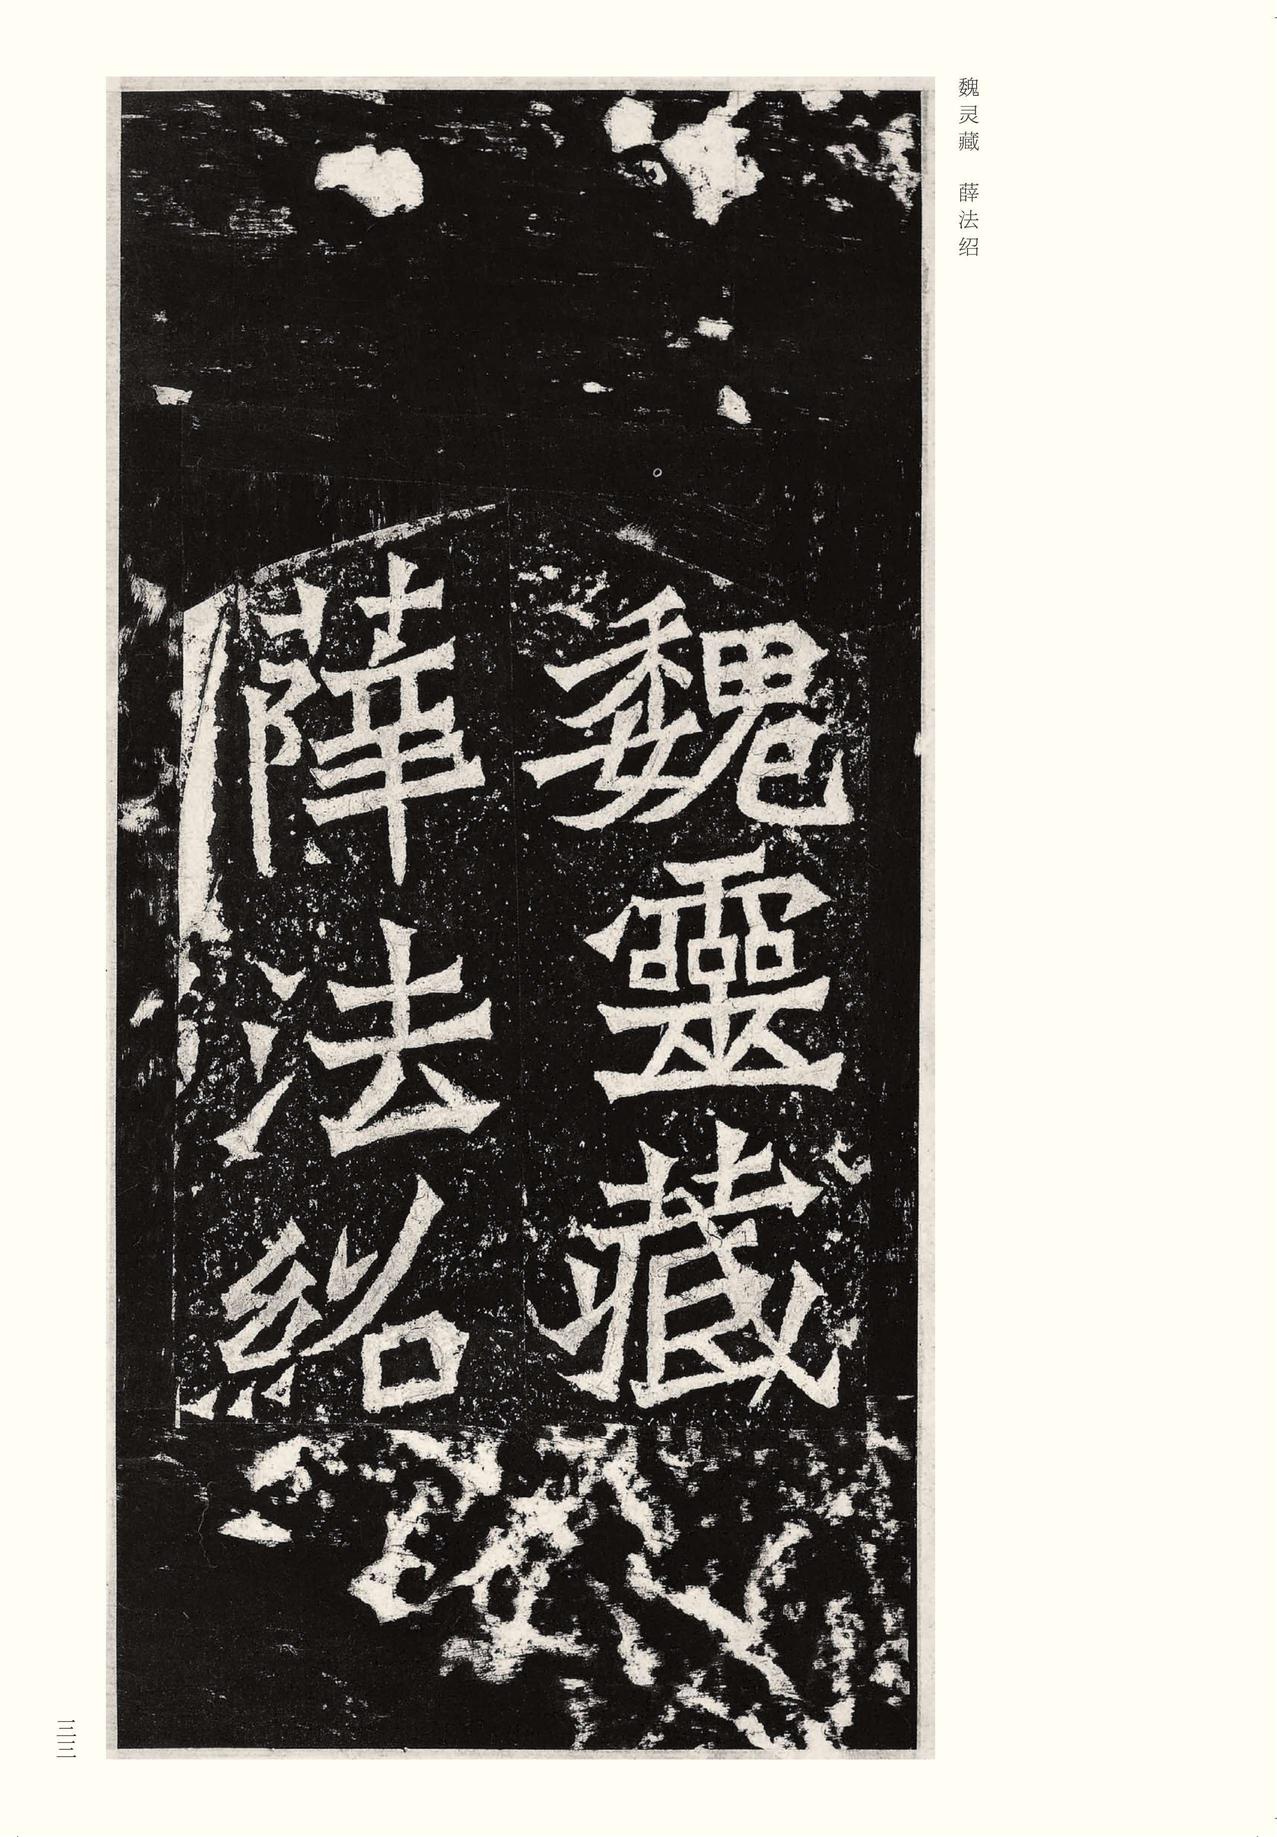 魏灵藏　薛法绍
魏靈藏
薛法紹
三三